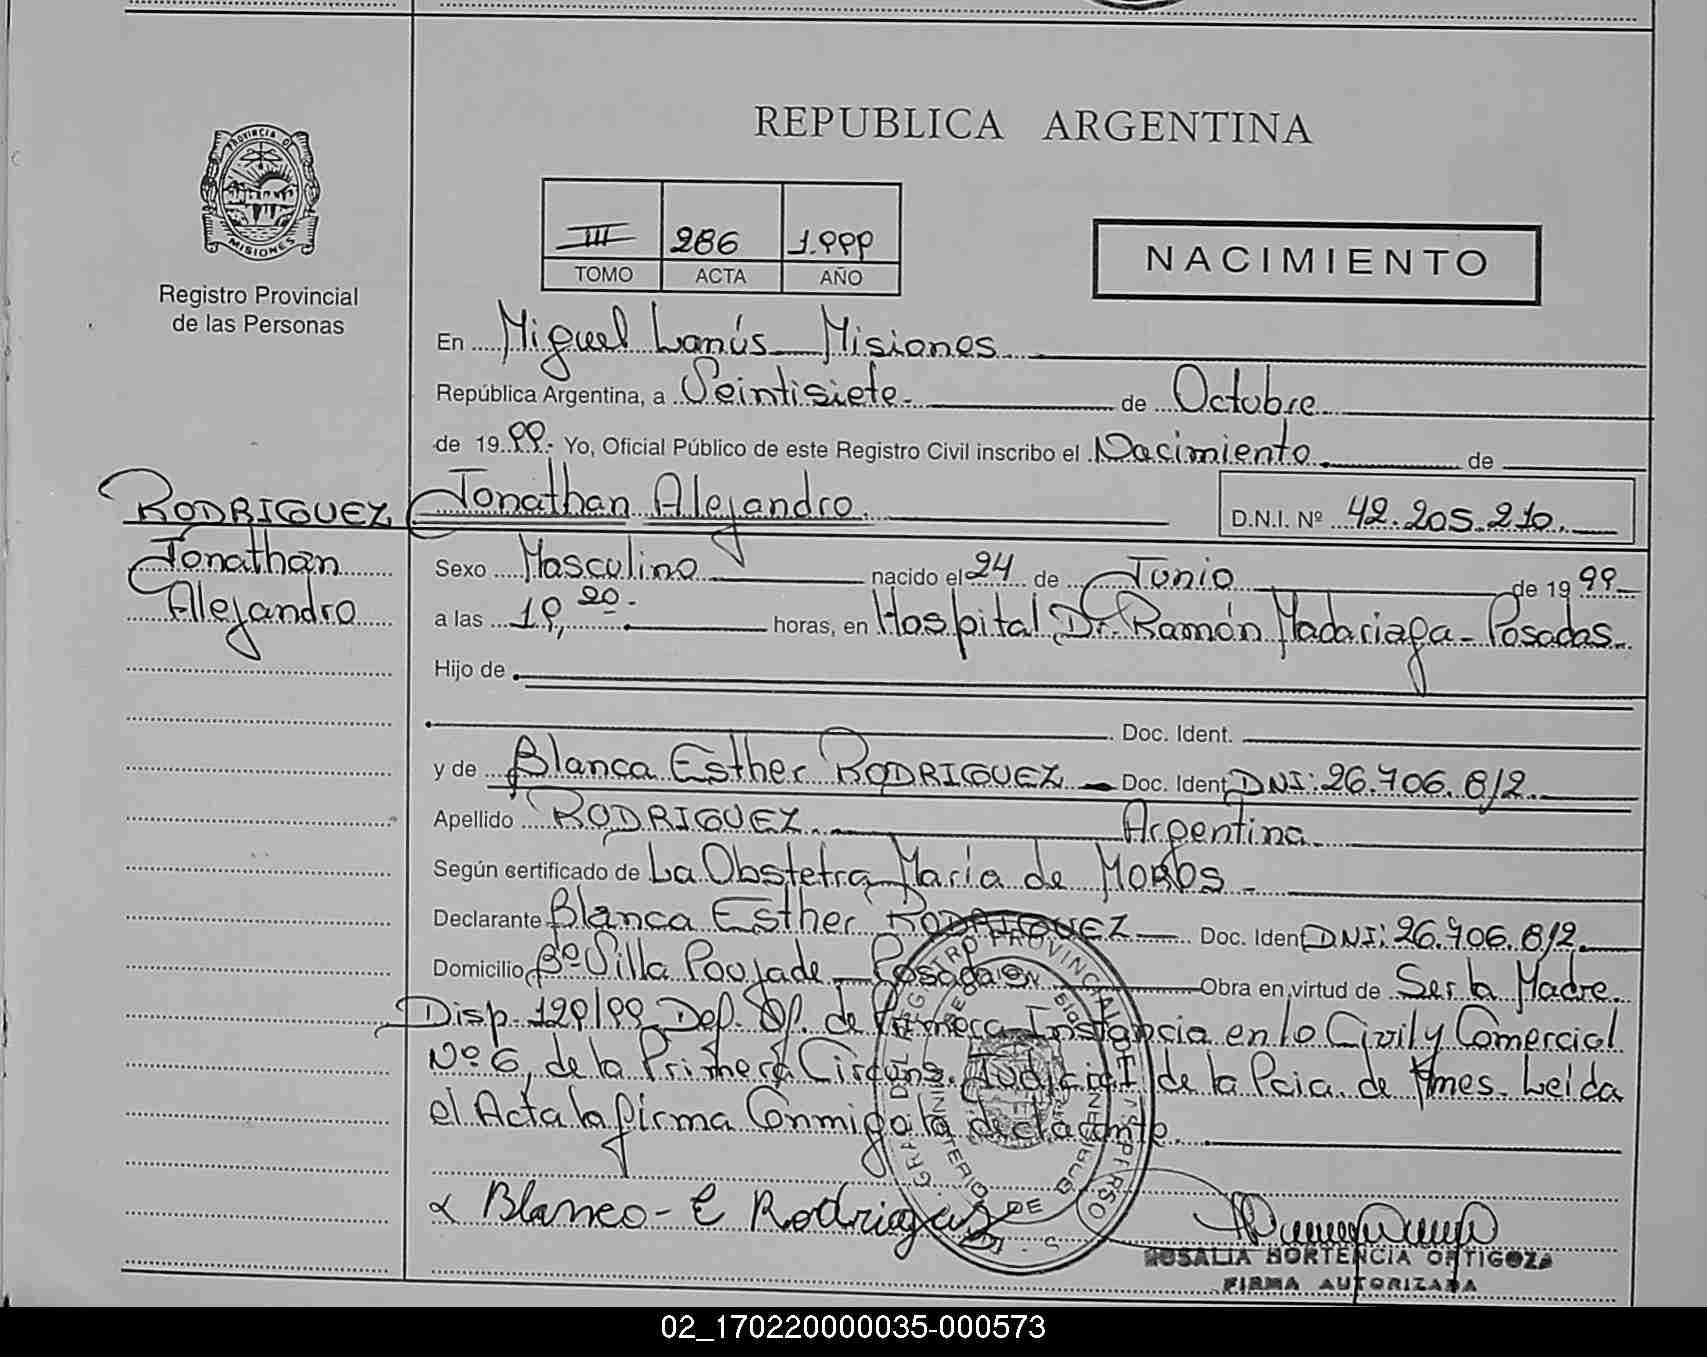 REPUBLICA ARGENTINA
PROVINCIA D
MISIONES
Registro Provincial
de las Personas
III 286 1.999
TOMO ACTA AÑO
NACIMIENTO
En Miguel Lanús Misiones
República Argentina, a Veintisiete de Octubre
de 19 99. Yo, Oficial Público de este Registro Civil inscribo el Nacimiento de
RODRIGUEZ Jonathan Alejandro D.N.I. Nº 42.205.210.
Jonathan
Alejandro
Sexo Masculino nacido el 24 de Junio de 19 99
a las 19, 20. horas, en Hospital Dr. Ramón Madariaga - Posadas.
Hijo de
Doc. Ident.
y de Blanca Esther RODRIGUEZ Doc. Ident. DNI: 26.706.812.
Apellido RODRIGUEZ. Argentina.
Según certificado de La Obstetra María de
Declarante Blanca Esther RODRIGUEZ Doc. Ident. DNI: 26.706.812.
Domicilio Bº Villa Poujade - Posadas Obra en virtud de Ser la Madre.
Disp. 129/99 Def. Of. de Primera Instancia en lo Civil y Comercial
Nº 6, de la Primera Circuns. Judicial de la Pcia. de Mnes. Leída
el Acta la firma Conmigo la declarante.
Blanca - E Rodriguez
ROSALIA HORTENCIA ORTIGOZA
FIRMA AUTORIZADA
02_170220000035-000573